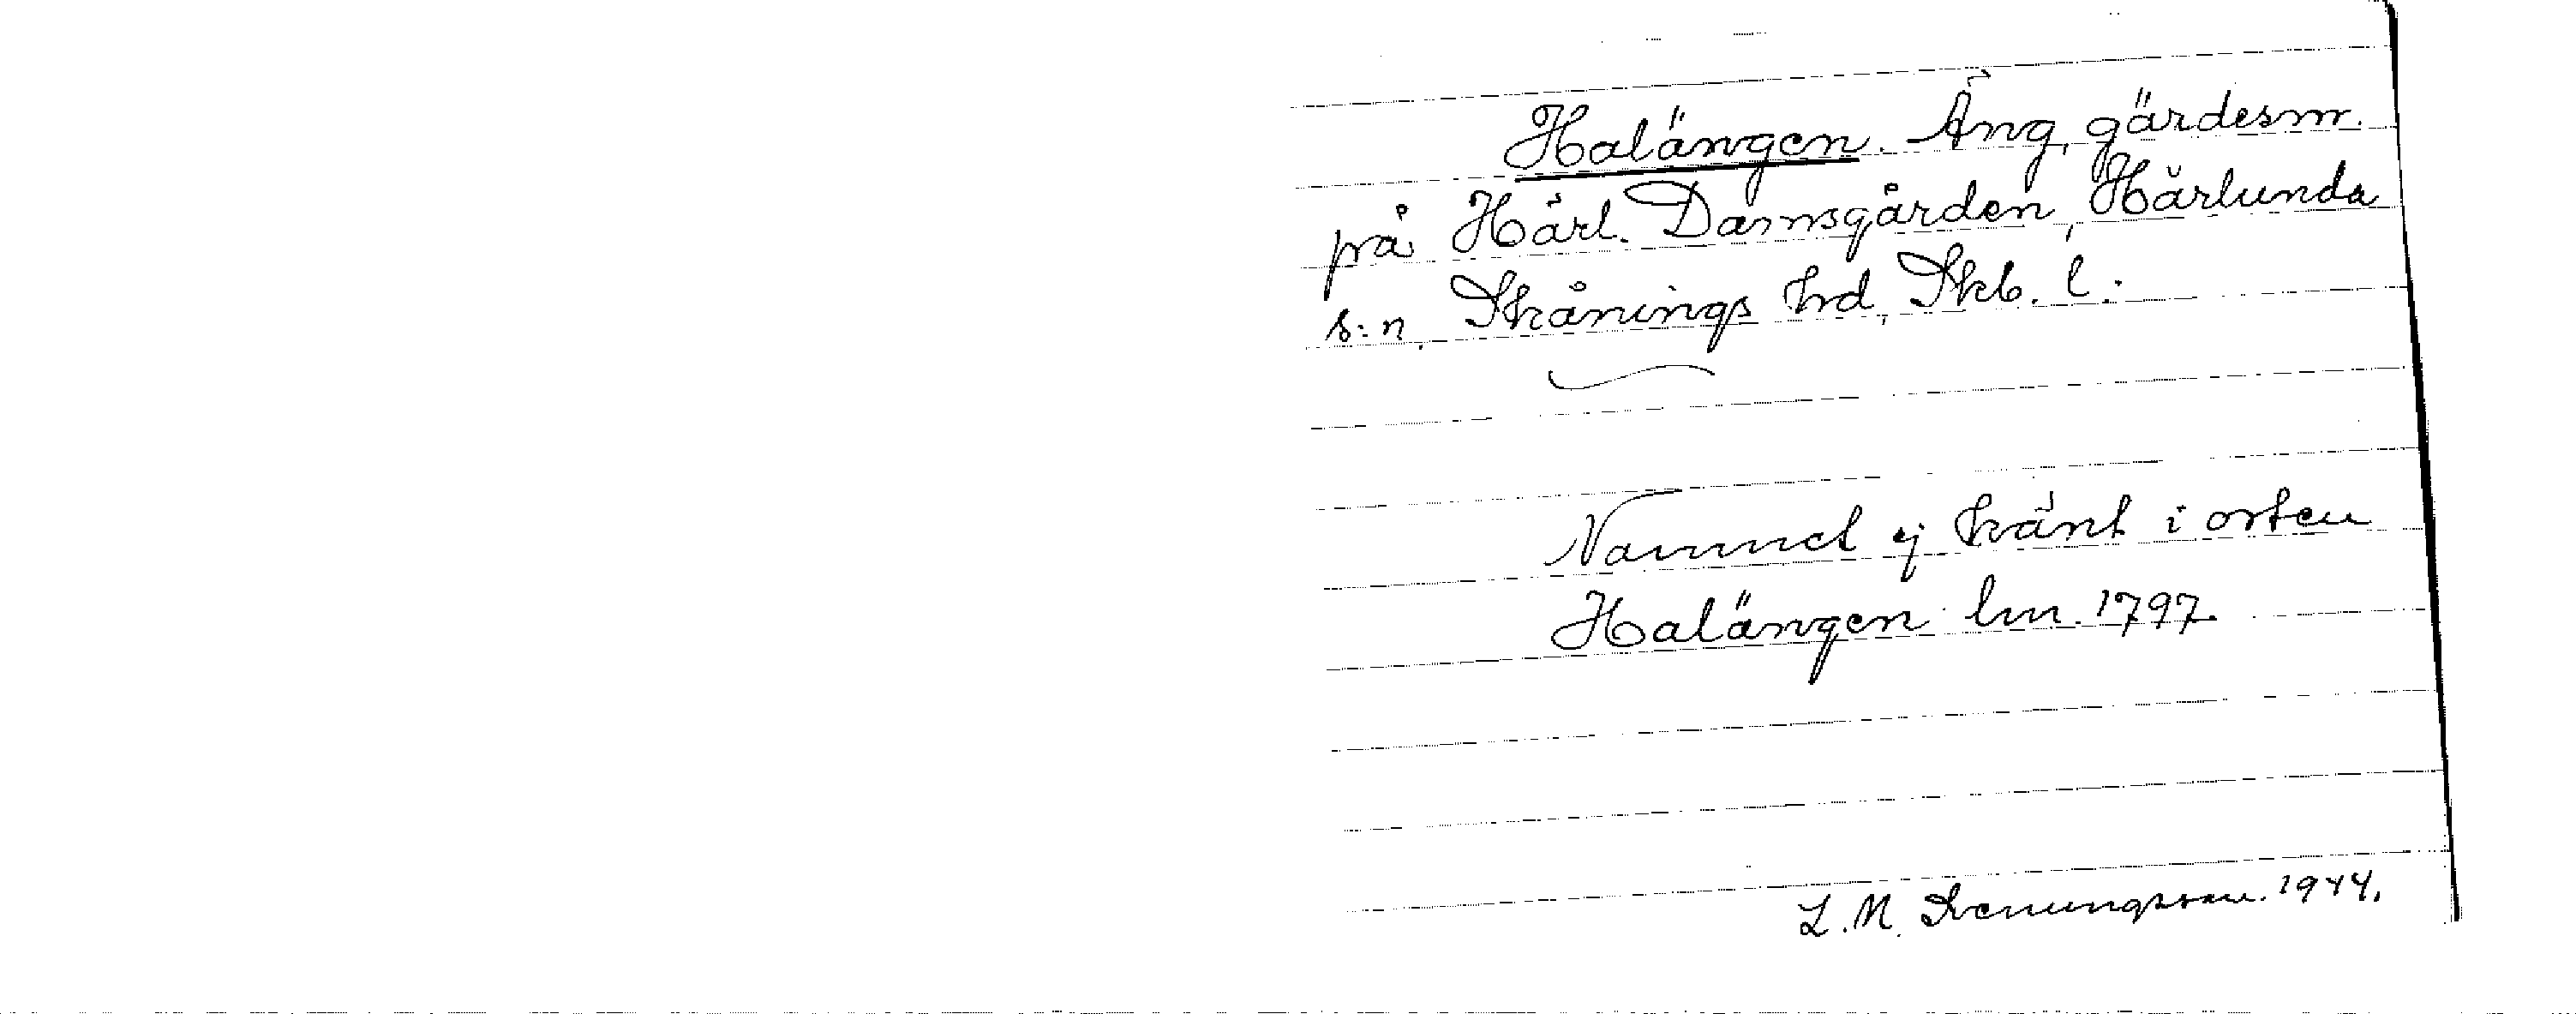 Halängen. Äng, gärdesnr.
på Härl. Damsgården, Härlunda
s:n. Skånings hd, Skb. l.
Namnet ej känt i orten
Halängen lm. 1797.
L. M. Svenungsson. 1944.